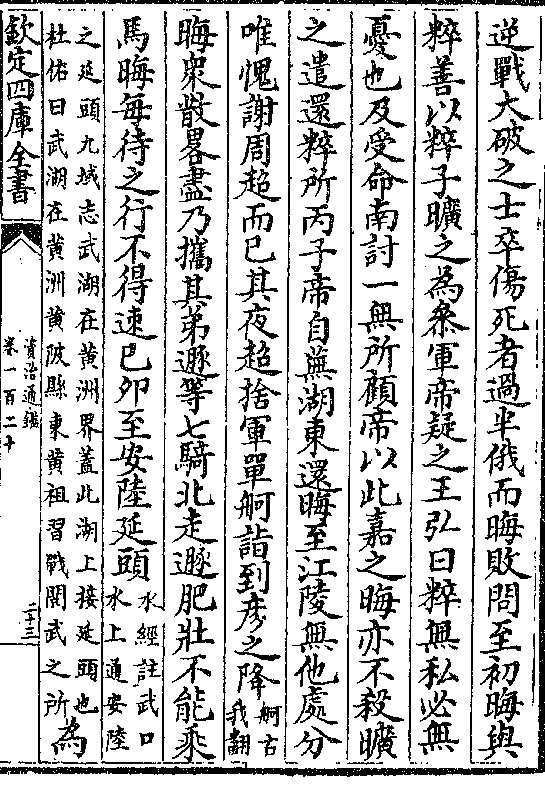 逆戰大破之士卒傷死者過半俄而晦敗問至初晦與
粹善以粹子曠之為叅軍帝疑之王弘曰粹無私必無
憂也及受命南討一無所顧帝以此嘉之晦亦不殺曠
之遣還粹所丙子帝自蕪湖東還晦至江陵無他處分
唯愧謝周超而已其夜超捨軍單舸詣到彦之降
舸古
我翻
晦衆散畧盡乃攜其弟遯等七騎北走遯肥壯不能乘
馬晦每待之行不得速已夘至安陸延頭
水經註武口
水上通安陸
之延頭九域志武湖在黄洲界蓋此湖上接延頭也
杜佑曰武湖在黄洲黄陂縣東黄祖習戰閱武之所
為
欽定四庫全書
資治通鑑
卷一百二十
二十三